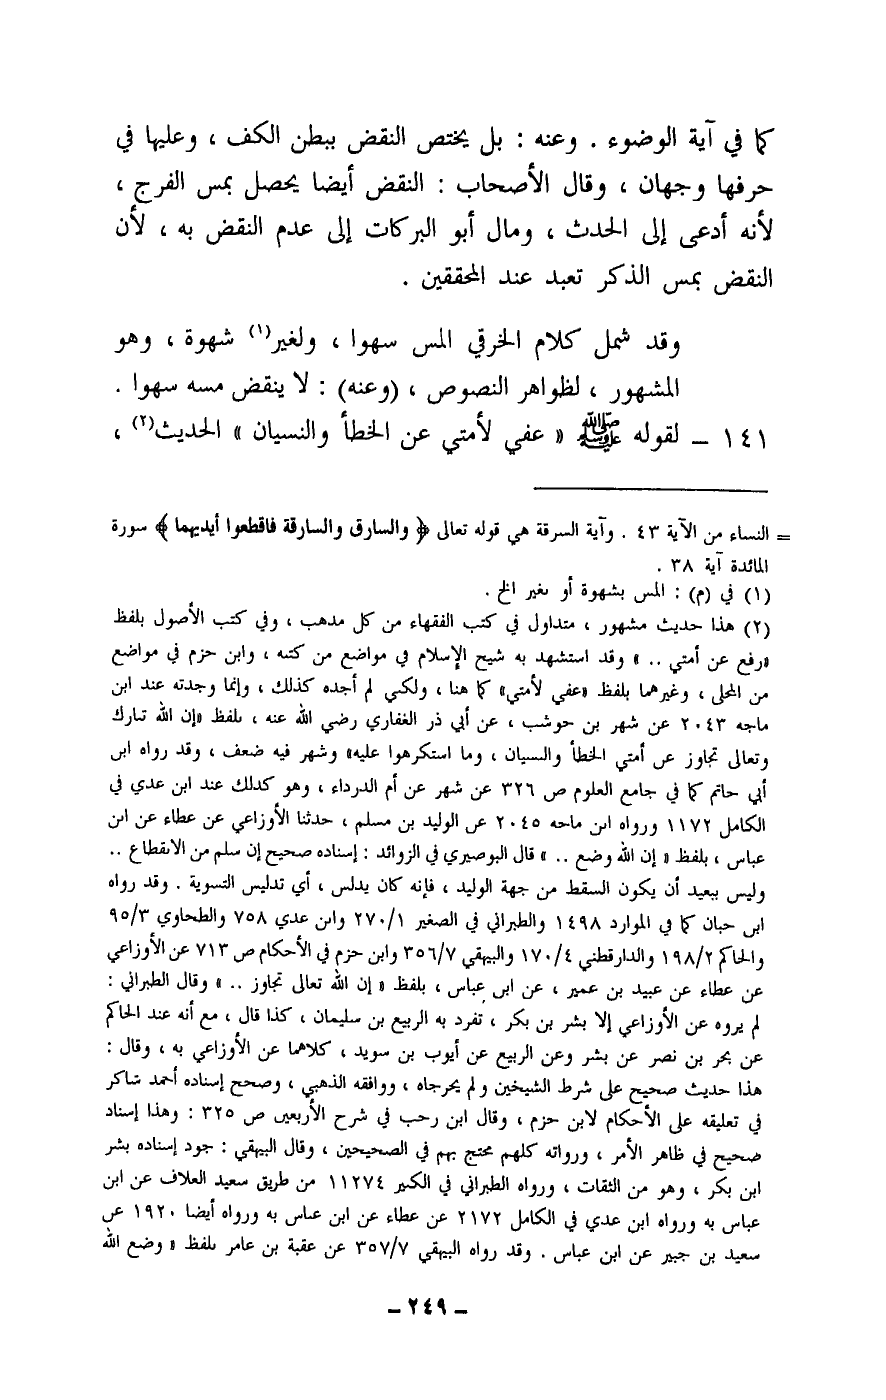 كما في آية الوضوء . وعنه : بل يختص النقض ببطن الكف ، وعليها في
حرفها وجهان ، وقال الأصحاب : النقض أيضا يحصل بمس الفرج ،
لأنه أدعى إلى الحدث ، ومال أبو البركات إلى عدم النقض به ، لأن
النقض بمس الذكر تعبد عند المحققين .
وقد شمل كلام الخرقي المس سهوا ، ولغير(١) شهوة ، وهو
المشهور ، لظواهر النصوص ، (وعنه) : لا ينقض مسه سهوا .
١٤١ – لقوله ﷺ « عفي لأمتي عن الخطأ والنسيان » الحديث(٢) ،
= النساء من الآية ٤٣ . وآية السرقة هي قوله تعالى ﴿ والسارق والسارقة فاقطعوا أيديهما ﴾ سورة
المائدة آية ٣٨ .
(١) في (م) : المس بشهوة أو بغير الخ .
(٢) هذا حديث مشهور ، متداول في كتب الفقهاء من كل مذهب ، وفي كتب الأصول بلفظ
«رفع عن أمتي .. » وقد استشهد به شيخ الإسلام في مواضع من كتبه ، وابن حزم في مواضع
من المحلى ، وغيرهما بلفظ «عفي لأمتي» كما هنا ، ولكني لم أجده كذلك ، وإنما وجدته عند ابن
ماجه ٢٠٤٣ عن شهر بن حوشب ، عن أبي ذر الغفاري رضي الله عنه ، بلفظ «إن الله تبارك
وتعالى تجاوز عن أمتي الخطأ والنسيان ، وما استكرهوا عليه» وشهر فيه ضعف ، وقد رواه ابن
أبي حاتم كما في جامع العلوم ص ٣٢٦ عن شهر عن أم الدرداء ، وهو كذلك عند ابن عدي في
الكامل ١١٧٢ ورواه ابن ماجه ٢٠٤٥ عن الوليد بن مسلم ، حدثنا الأوزاعي عن عطاء عن ابن
عباس ، بلفظ « إن الله وضع .. » قال البوصيري في الزوائد : إسناده صحيح إن سلم من الانقطاع ..
وليس ببعيد أن يكون السقط من جهة الوليد ، فإنه كان يدلس ، أي تدليس التسوية . وقد رواه
ابن حبان كما في الموارد ١٤٩٨ والطبراني في الصغير ٢٧٠/١ وابن عدي ٧٥٨ والطحاوي ٩٥/٣
والحاكم ١٩٨/٢ والدارقطني ١٧٠/٤ والبيهقي ٣٥٦/٧ وابن حزم في الأحكام ص ٧١٣ عن الأوزاعي
عن عطاء عن عبيد بن عمير ، عن ابن عباس ، بلفظ « إن الله تعالى تجاوز .. » وقال الطبراني :
لم يروه عن الأوزاعي إلا بشر بن بكر ، تفرد به الربيع بن سليمان ، كذا قال ، مع أنه عند الحاكم
عن بحر بن نصر عن بشر وعن الربيع عن أيوب بن سويد ، كلاهما عن الأوزاعي به ، وقال :
هذا حديث صحيح على شرط الشيخين ولم يخرجاه ، ووافقه الذهبي ، وصحح إسناده أحمد شاكر
في تعليقه على الأحكام لابن حزم ، وقال ابن رجب في شرح الأربعين ص ٣٢٥ : وهذا إسناد
صحيح في ظاهر الأمر ، ورواته كلهم محتج بهم في الصحيحين ، وقال البيهقي : جود إسناده بشر
ابن بكر ، وهو من الثقات ، ورواه الطبراني في الكبير ١١٢٧٤ من طريق سعيد العلاف عن ابن
عباس به ورواه ابن عدي في الكامل ٢١٧٢ عن عطاء عن ابن عباس به ورواه أيضا ١٩٢٠ عن
سعيد بن جبير عن ابن عباس . وقد رواه البيهقي ٣٥٧/٧ عن عقبة بن عامر بلفظ « وضع الله
– ٢٤٩ –